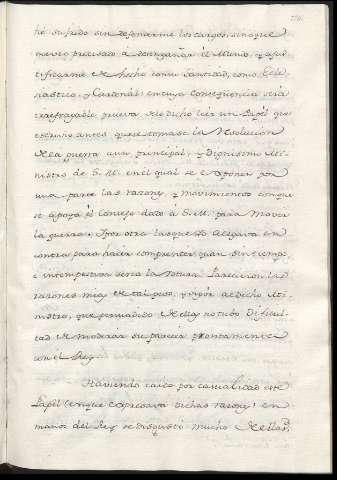 he sufrido sin desonarme los cargos, sino que
me veo precisado à desengañar el Mundo, y a jus
tificarme de hecho con su santidad, como Ecle
siastico, y Cardenal: en cuya consequencia será
irrefragable prueva de lo dicho leer un Papel que
escrivi antes que se tomase la Resolucion
de la guerra à un principal, y Dignisimo Mi
nistro de S. M. en el qual se exponen por
una parte las razones, y movimientos con que
se apoya el Consejo dado à S. M. para mover
la guerra; y por otra las que Yo alegava en
contra para hacer comprender quan sin tiempo,
è intempestiva seria la Rotura. Parecieron las
razones mias de tal peso, y vigor al dicho Mi
nistro, que persuadido de ellas no tubo Dificul
tad de mudar su parecer prontamente
con el Rey.
Haviendo caido por casualidad este
Papel (en que expresava dichas razones) en
manos del Rey se disgustò mucho de ellas,